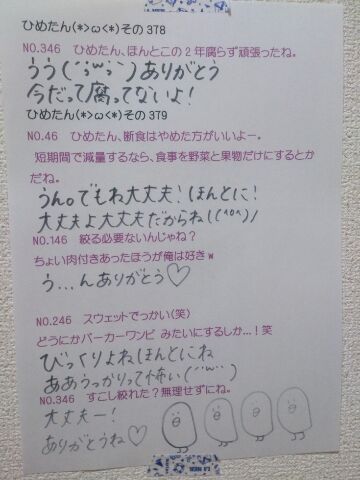 ひめたん(*>ω<*)その378
NO.346　ひめたん、ほんとこの2年腐らず頑張ったね。
うう(´;ω;`)ありがとう
今だって腐ってないよ!
ひめたん(*>ω<*)その379
NO.46　ひめたん、断食はやめた方がいいよー。
短期間で減量するなら、食事を野菜と果物だけにするとか
だね。
うん。でもね大丈夫!ほんとに!
大丈夫よ大丈夫だからね!(^o^)ノ
NO.146　絞る必要ないんじゃね?
ちょい肉付きあったほうが俺は好きw
う...んありがとう♡
NO.246　スウェットでっかい(笑)
どうにかパーカーワンピ みたいにするしか...!笑
びっくりよねほんとにね
ああうっかりって怖い(´;ω;`)
NO.346　すこし絞れた?無理せずにね。
大丈夫ー!
ありがとうね♡